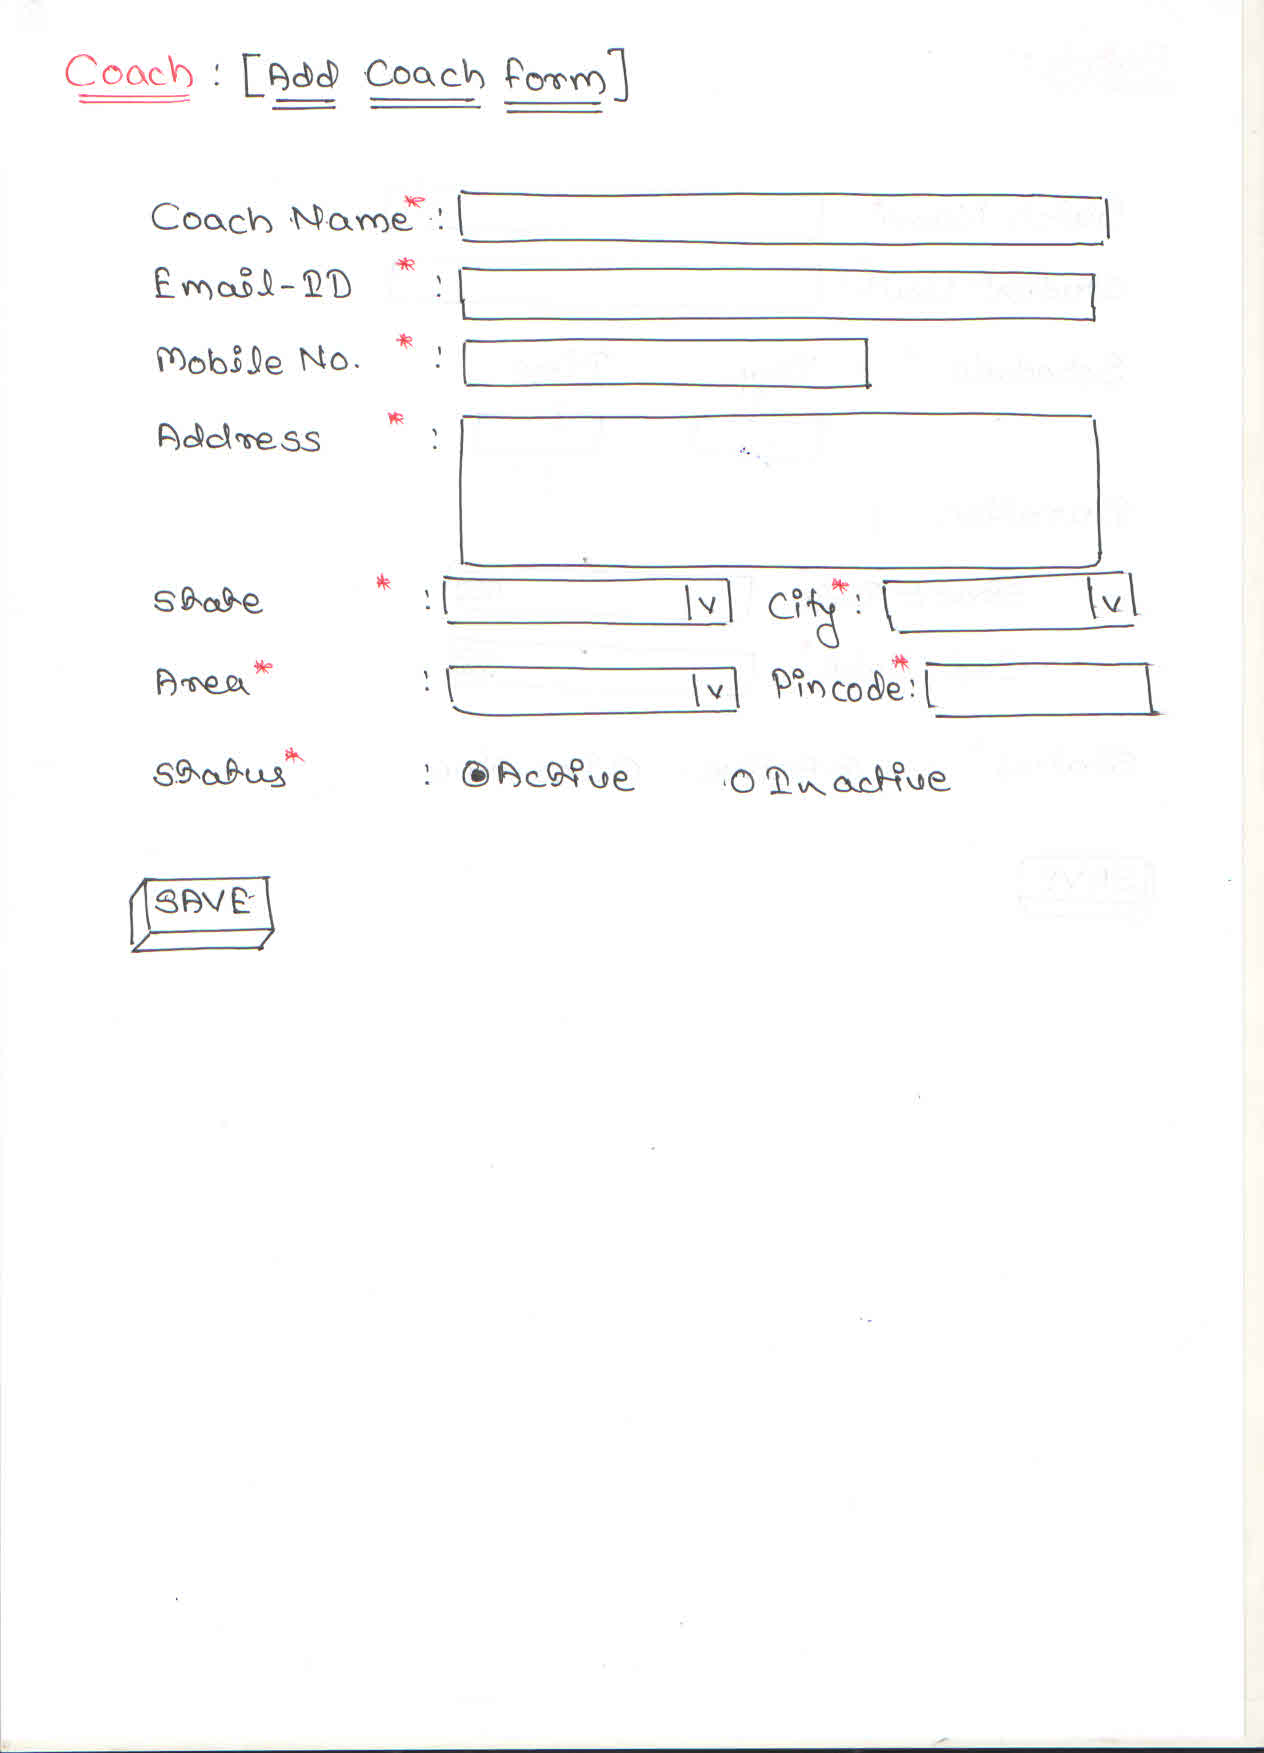 Coach : [Add Coach form]
Coach Name* :
Email-ID * :
Mobile No. * :
Address * :
State * : v City* : v
Area* : v Pincode* :
Status* : Active Inactive
SAVE